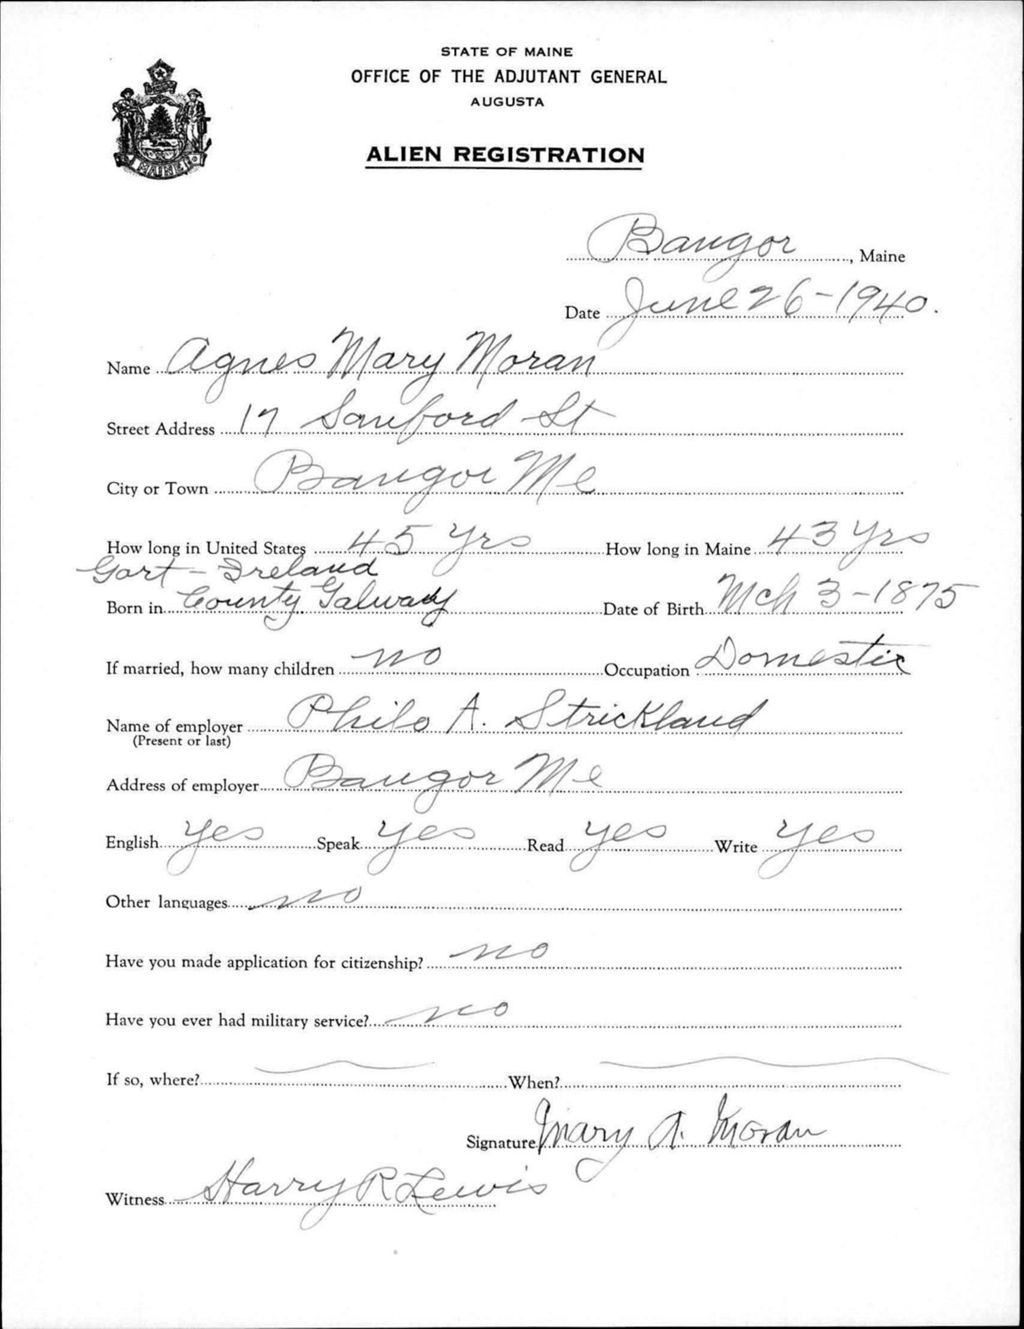 STATE OF MAINE
OFFICE OF THE ADJUTANT GENERAL
AUGUSTA
ALIEN REGISTRATION
MAINE
Bangor, Maine
Date June 26-1940.
Name Agnes Mary Moran
Street Address 17 Sanford St
City or Town Bangor Me
How long in United States 45 yrs How long in Maine 43 yrs
Gort - Ireland
Born in County Galway Date of Birth Mch 3-1875
If married, how many children no Occupation Domestic
Name of employer Philo A. Strickland
(Present or last)
Address of employer Bangor Me
English yes Speak yes Read yes Write yes
Other languages no
Have you made application for citizenship? no
Have you ever had military service? no
If so, where? When?
Signature Mary A. Moran
Witness Harry R Lewis